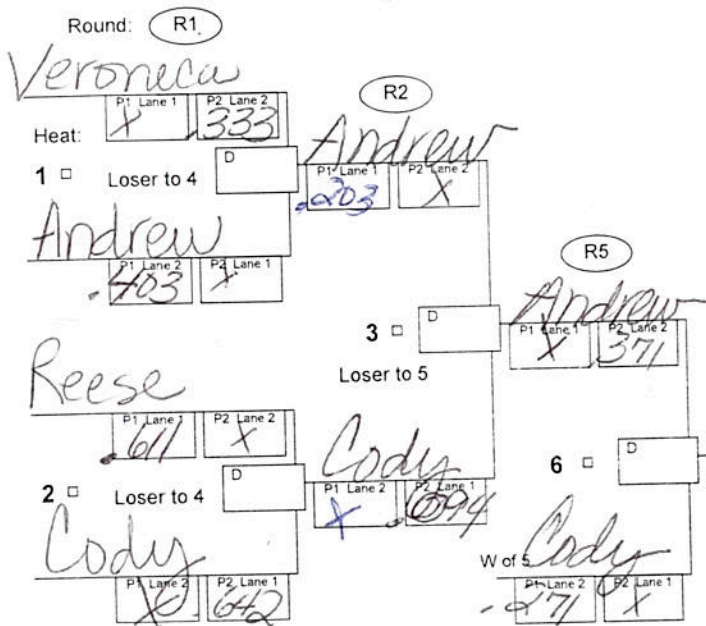 Round: R1
Veroneca
P1 Lane 1 P2 Lane 2
X .333
Heat:
1 Loser to 4 D
Andrew
P1 Lane 2 P2 Lane 1
.403 X
Reese
P1 Lane 1 P2 Lane 2
.611 X
2 Loser to 4 D
Cody
P1 Lane 2 P2 Lane 1
X .642
R2
Andrew
P1 Lane 1 P2 Lane 2
.203 X
3 D
Loser to 5
Cody
P1 Lane 2 P2 Lane 1
X
R5
Andrew
P1 Lane 1 P2 Lane 2
X .371
6 D
W of 5 Cody
P1 Lane 2 P2 Lane 1
.271 X